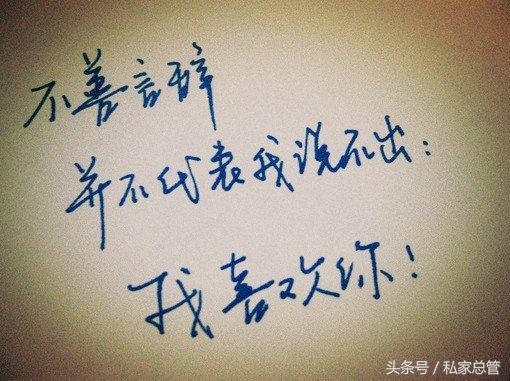 不善言辞
并不代表我说不出：
我喜欢你！
头条号／私家总管